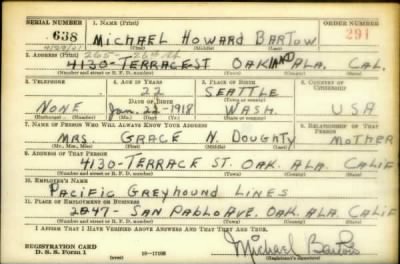 SERIAL NUMBER 1. NAME (Print) ORDER NUMBER
638 MICHAEL HOWARD BARTOW 291
(First) (Middle) (Last)
2. ADDRESS (Print)
4130-TERRACE ST OAKLAND ALA. CAL.
(Number and street or R. F. D. number) (Town) (County) (State)
3. TELEPHONE 4. AGE IN YEARS 5. PLACE OF BIRTH 6. COUNTRY OF CITIZENSHIP
22 SEATTLE
DATE OF BIRTH (Town or county)
NONE Jan. 1918 WASH. USA
(Exchange) (Number) (Mo.) (Day) (Yr.) (State or country)
7. NAME OF PERSON WHO WILL ALWAYS KNOW YOUR ADDRESS 8. RELATIONSHIP OF THAT PERSON
MRS. GRACE N. DOUGHTY MOTHER
(Mr., Mrs., Miss) (First) (Middle) (Last)
9. ADDRESS OF THAT PERSON
4130-TERRACE ST. OAK. ALA. CALIF
(Number and street or R. F. D. number) (Town) (County) (State)
10. EMPLOYER'S NAME
PACIFIC GREYHOUND LINES
11. PLACE OF EMPLOYMENT OR BUSINESS
2047-SAN PABLO AVE. OAK. ALA. CALIF
(Number and street or R. F. D. number) (Town) (County) (State)
I AFFIRM THAT I HAVE VERIFIED ABOVE ANSWERS AND THAT THEY ARE TRUE.
REGISTRATION CARD
D. S. S. Form 1 (over) Michael Bartow
(Registrant's signature)